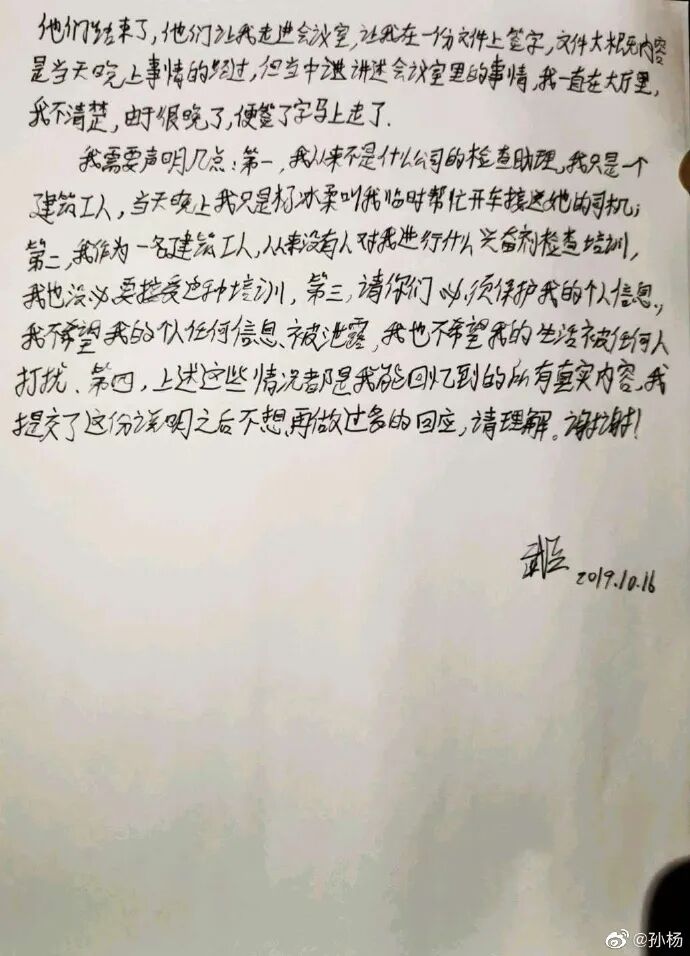 他们结束了,他们让我走进会议室,让我在一份文件上签字,文件大概内容
是当天晚上事情的经过,但当中讲述会议室里的事情,我一直在大厅里,
我不清楚,由于很晚了,便签了字马上走了.
我需要声明几点:第一,我从来不是什么公司的检查助理,我只是一个
建筑工人,当天晚上我只是杨冰柔叫我临时帮忙开车接送她的司机;
第二,我作为一名建筑工人,从来没有人对我进行什么兴奋剂检查培训,
我也没必要接受这种培训,第三,请你们必须保护我的个人信息,
我不希望我的个人任何信息被泄露,我也不希望我的生活被任何人
打扰.第四,上述这些情况都是我能回忆到的所有真实内容,我
提交了这份说明之后不想再做过多的回应,请理解。谢谢!
2019.10.16
@孙杨